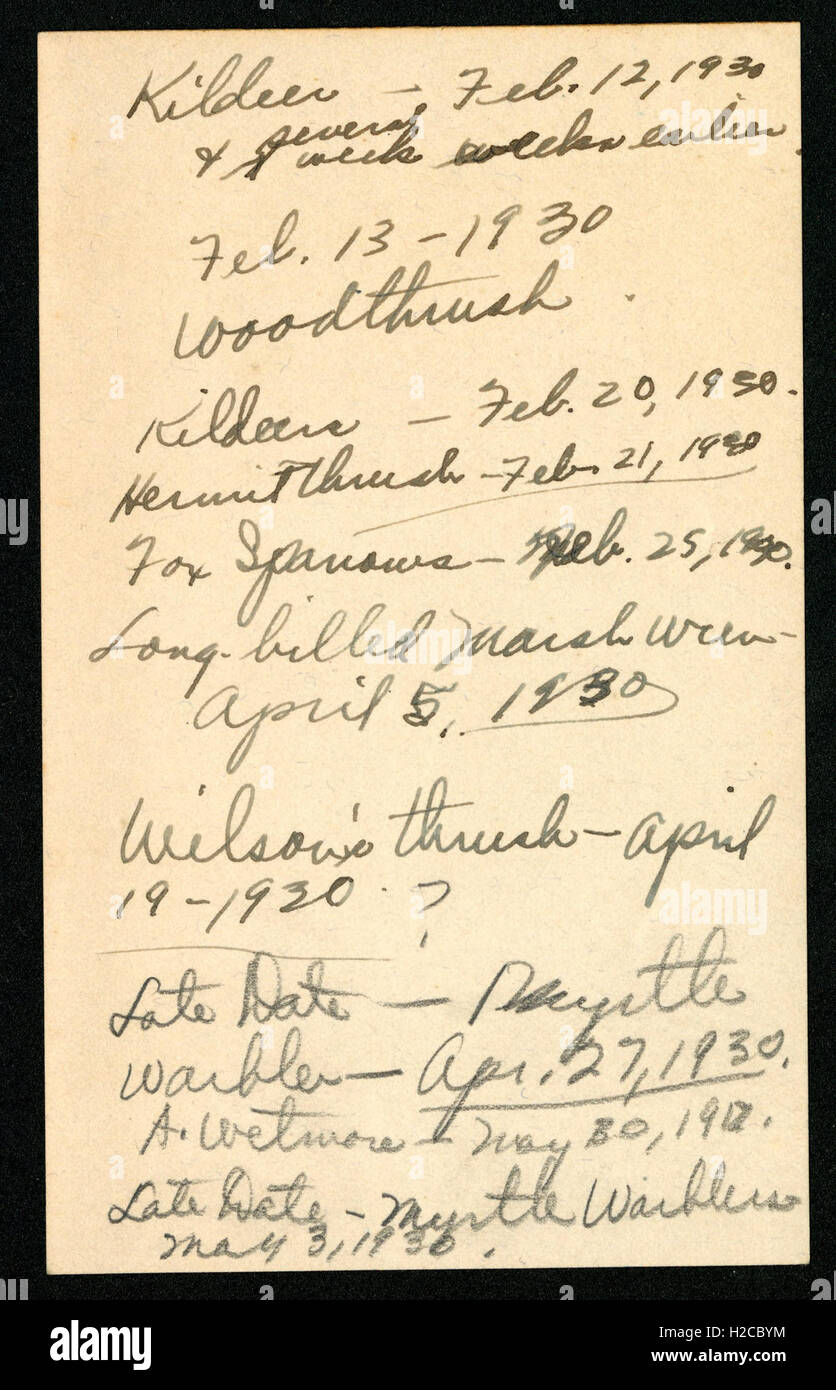 Kildeer — Feb. 12, 1930
several
& week weeks earlier.
Feb. 13 - 1930
Woodthrush.
Kildeers — Feb. 20, 1930.
Hermit thrush - Feb. 21, 1930
Fox Sparrows - Feb. 25, 1930.
Long-billed Marsh Wren -
April 5, 1930
Wilson's thrush - April
19 - 1930 ?
Late Date — Myrtle
Warbler — Apr. 27, 1930.
A. Wetmore - May 30,
Late Date - Myrtle Warblers
May 3, 1930.
alamy stock photo
H2CBYM
www.alamy.com